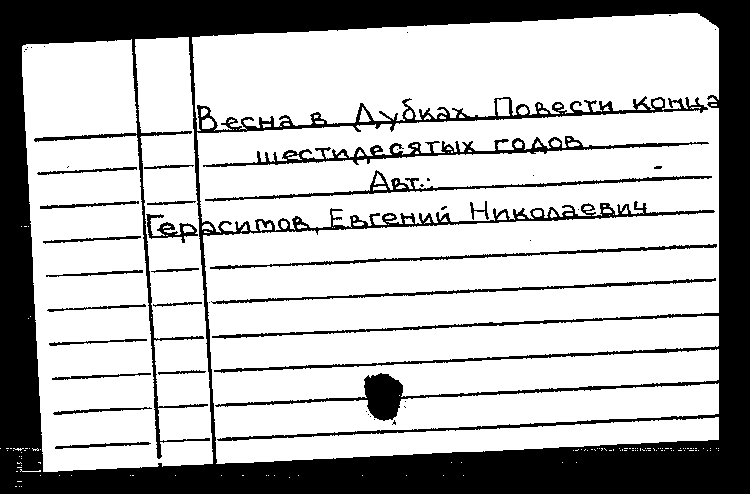 Весна в Дубках. Повести конца
шестидесятых годов.
Авт.:
Герасимов, Евгений Николаевич